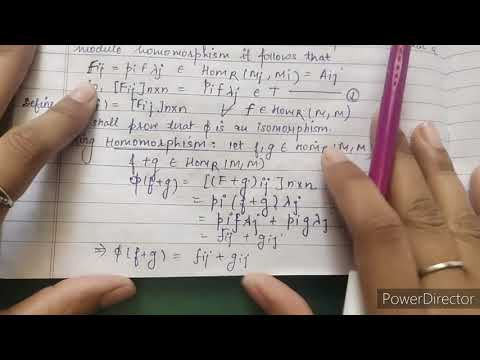 module homomorphism it follows that
Fij = pi f λj ∈ HomR (Mj, Mi) = Aij
[Fij]nxn = pi f λj ∈ T ①
Define [Fij]nxn ∀ f ∈ HomR (M, M)
shall prove that ϕ is an isomorphism.
Homomorphism: let f, g ∈ HomR (M, M
f + g ∈ HomR (M, M)
ϕ(f+g) = [(F+g)ij]nxn
= pi (f + g) λj
= pi f λj + pi g λj
= fij + gij
⇒ ϕ(f+g) = fij + gij
PowerDirector